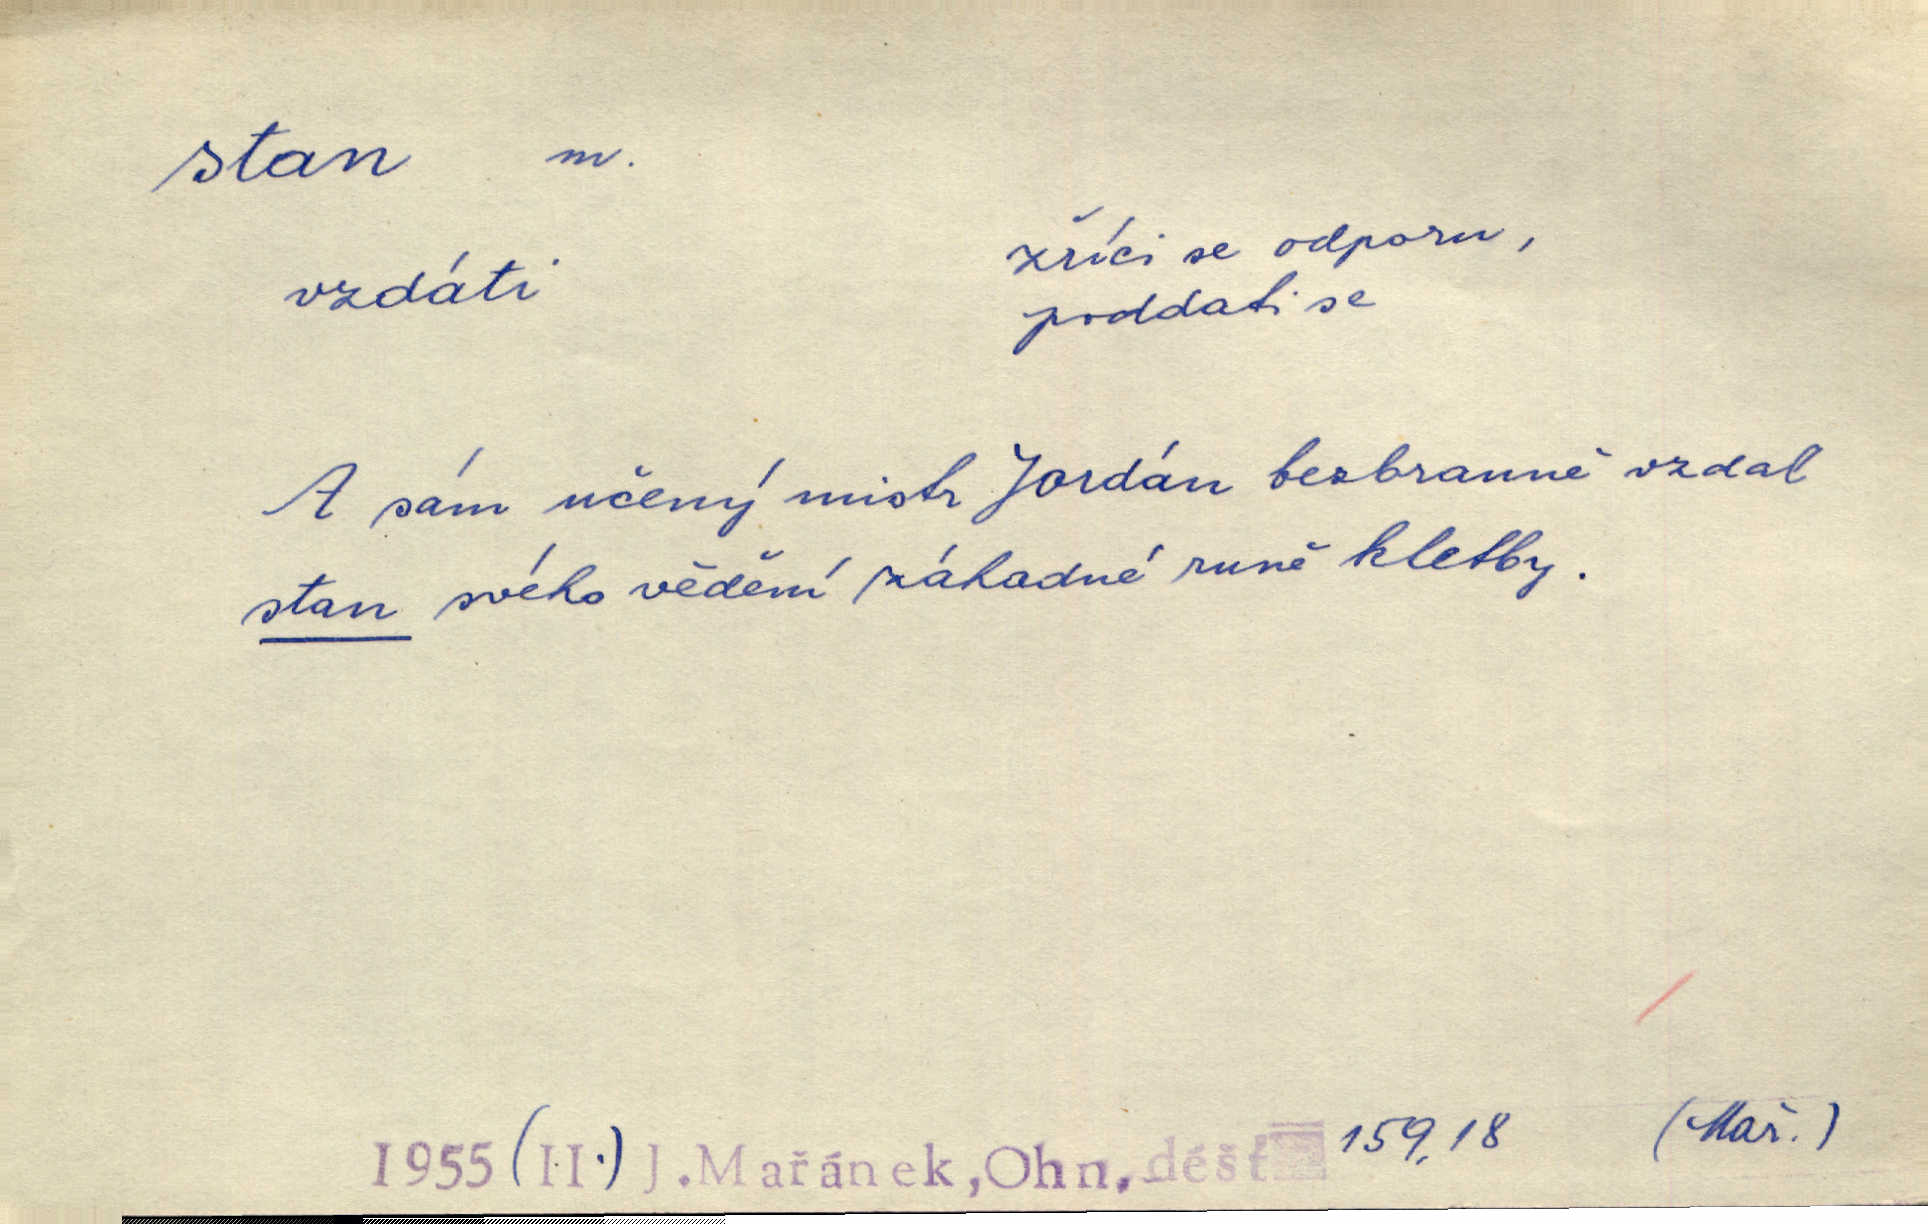 stan m.
vzdáti
zříci se odporu,
poddati se
A sám učený mistr Jordán bezbranně vzdal
stan svého vědění záhadné runě kletby.
1955 (II.) J. Mařánek, Ohn. déšť 159,18 (Mař.)